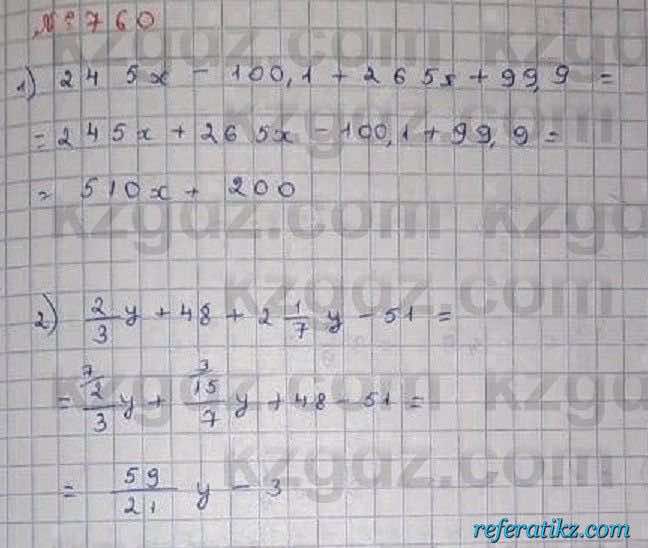 № 760
1) 245x - 100,1 + 265x + 99,9 =
= 245x + 265x - 100,1 + 99,9 =
= 510x + 200
2) 2/3 y + 48 + 2 1/7 y - 51 =
= 7 2/3 y + 3 15/7 y + 48 - 51 =
= 59/21 y - 3
kzgdz.com
referatikz.com